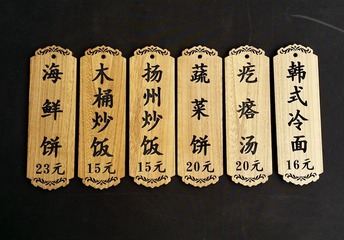 海鲜饼
23元
木桶炒饭
15元
扬州炒饭
15元
蔬菜饼
20元
疙瘩汤
20元
韩式冷面
16元